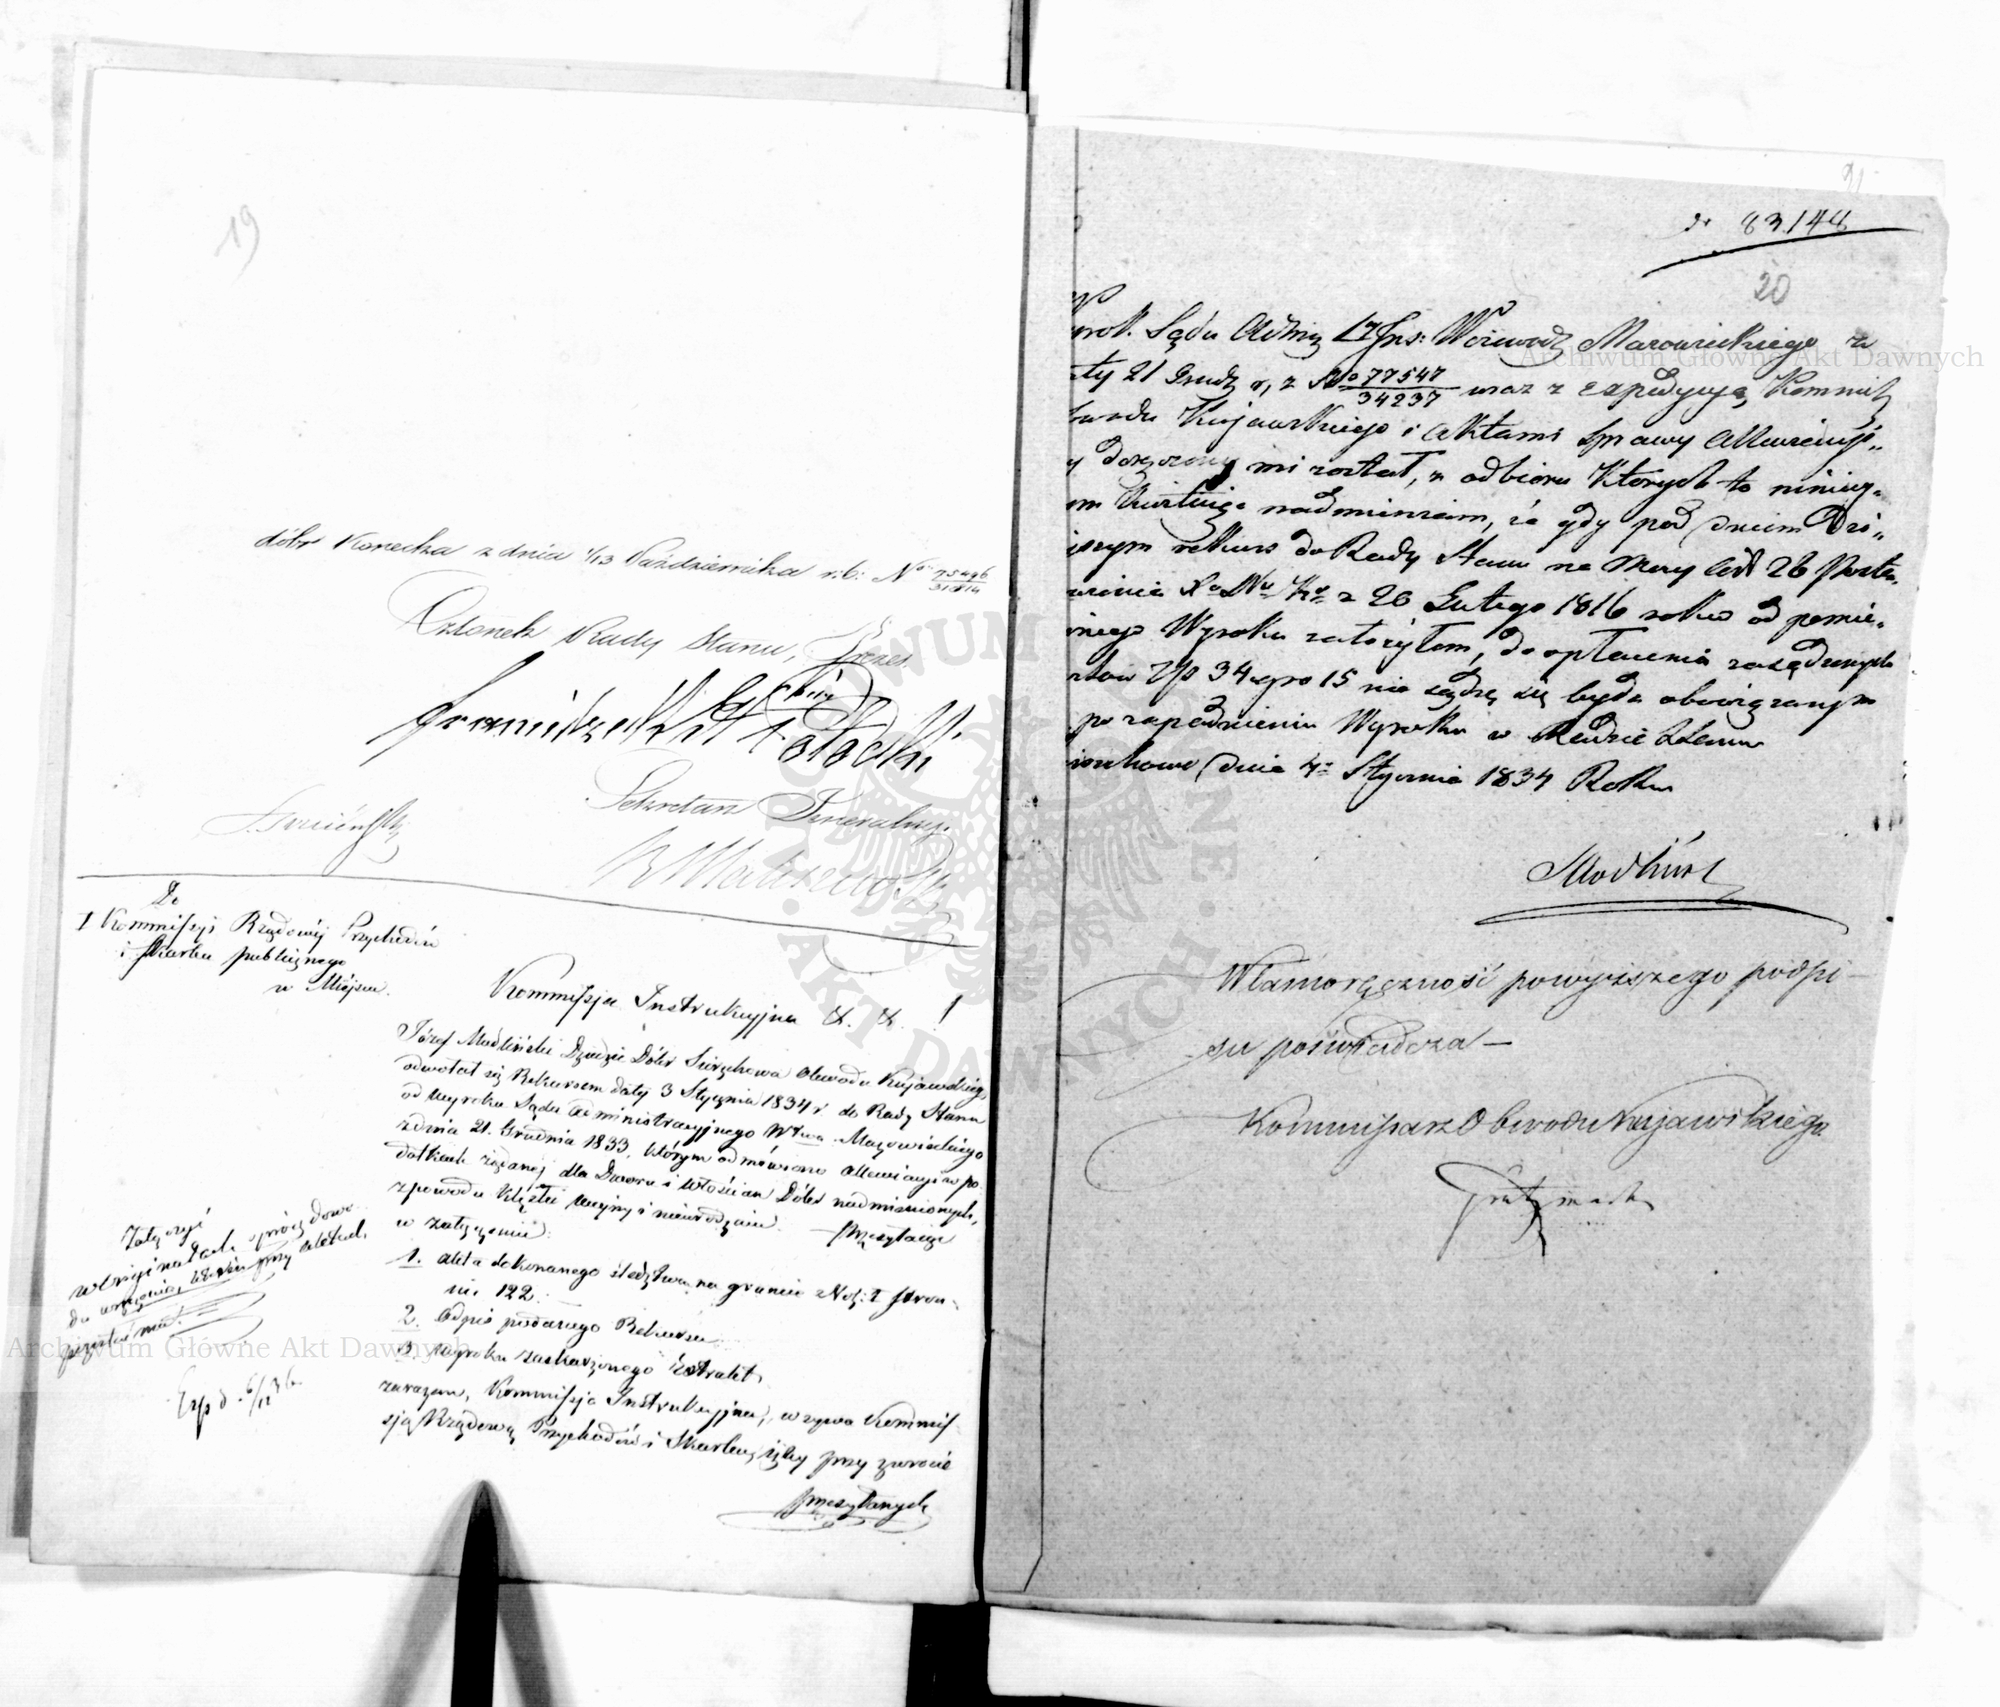 19
dóbr Konecka z dnia 1/13 Października r: b: No 75496/31814
Członek Rady Stanu, Prezes
Franciszek Hr Potocki
Sekretarz Generalny
Do
I Kommissyi Rządowéy Przychodów
i Skarbu publicznego
w Miejscu.
Kommissja Instrukcyjna &. &. !
Józef Modliński Dziedzic Dóbr Sierzchowa Obwodu Kujawskiego
odwołał się Rekursem daty 3 Stycznia 1834 r do Rady Stanu
od wyroku Sądu Administracyjnego Wtwa Mazowieckiego
z dnia 21. Grudnia 1833, którym odmówiono Allewiacyi w po
datkach żądanéj dla Dworu i Włościan Dóbr nadmienionych,
z powodu klęski wojny i nieurodzaiu. Przesyłaiąc
w załączeniu:
1. akta dokonanego śledztwa na gruncie z No: I stron
ni. 122.
2. Odpis podanego Rekursu
3. wyroku zaskarżonego extrakt
zarazem, Kommissja Instrukcyjna, wzywa Kommis
sją Rządową Przychodów i Skarbu, iżby przy zwrocie
przesyłanych
Załączyć
w oryginałach oprócz dowo
przy aktach
Exp d. 6/11 36.
21
d. 83,148
20
Wyrok. Sądu Admin I Ins: Wojewodz Mazowieckiego z
daty 21 Grudz r, z No 77547/34237 wraz z expedycyą Kommiss
Obwodu Kujawskiego i Aktami Sprawy Allewiacyi„
y doręczony mi został, z odbioru których to niniey„
szem kwituię nadmieniam, że gdy pod dniem Dzi„
siejszym rekurs do Rady Stanu na mocy Art 26 Posta„
nowienia z 26 Lutego 1816 roku od pomie„
nionego Wyroku założyłem, do opłacenia zasądzonych
kosztów Zp 34 gro 15 nie sądzę się bydź obowiązanym
po zapadnieniu Wyroku w Radzie Stanu
Sierzchowo dnia 4o Stycznia 1834 Roku
Modliński
Własnoręczność powyższego podpi-
su poświadcza —
Kommissarz Obwodu Kujawskiego